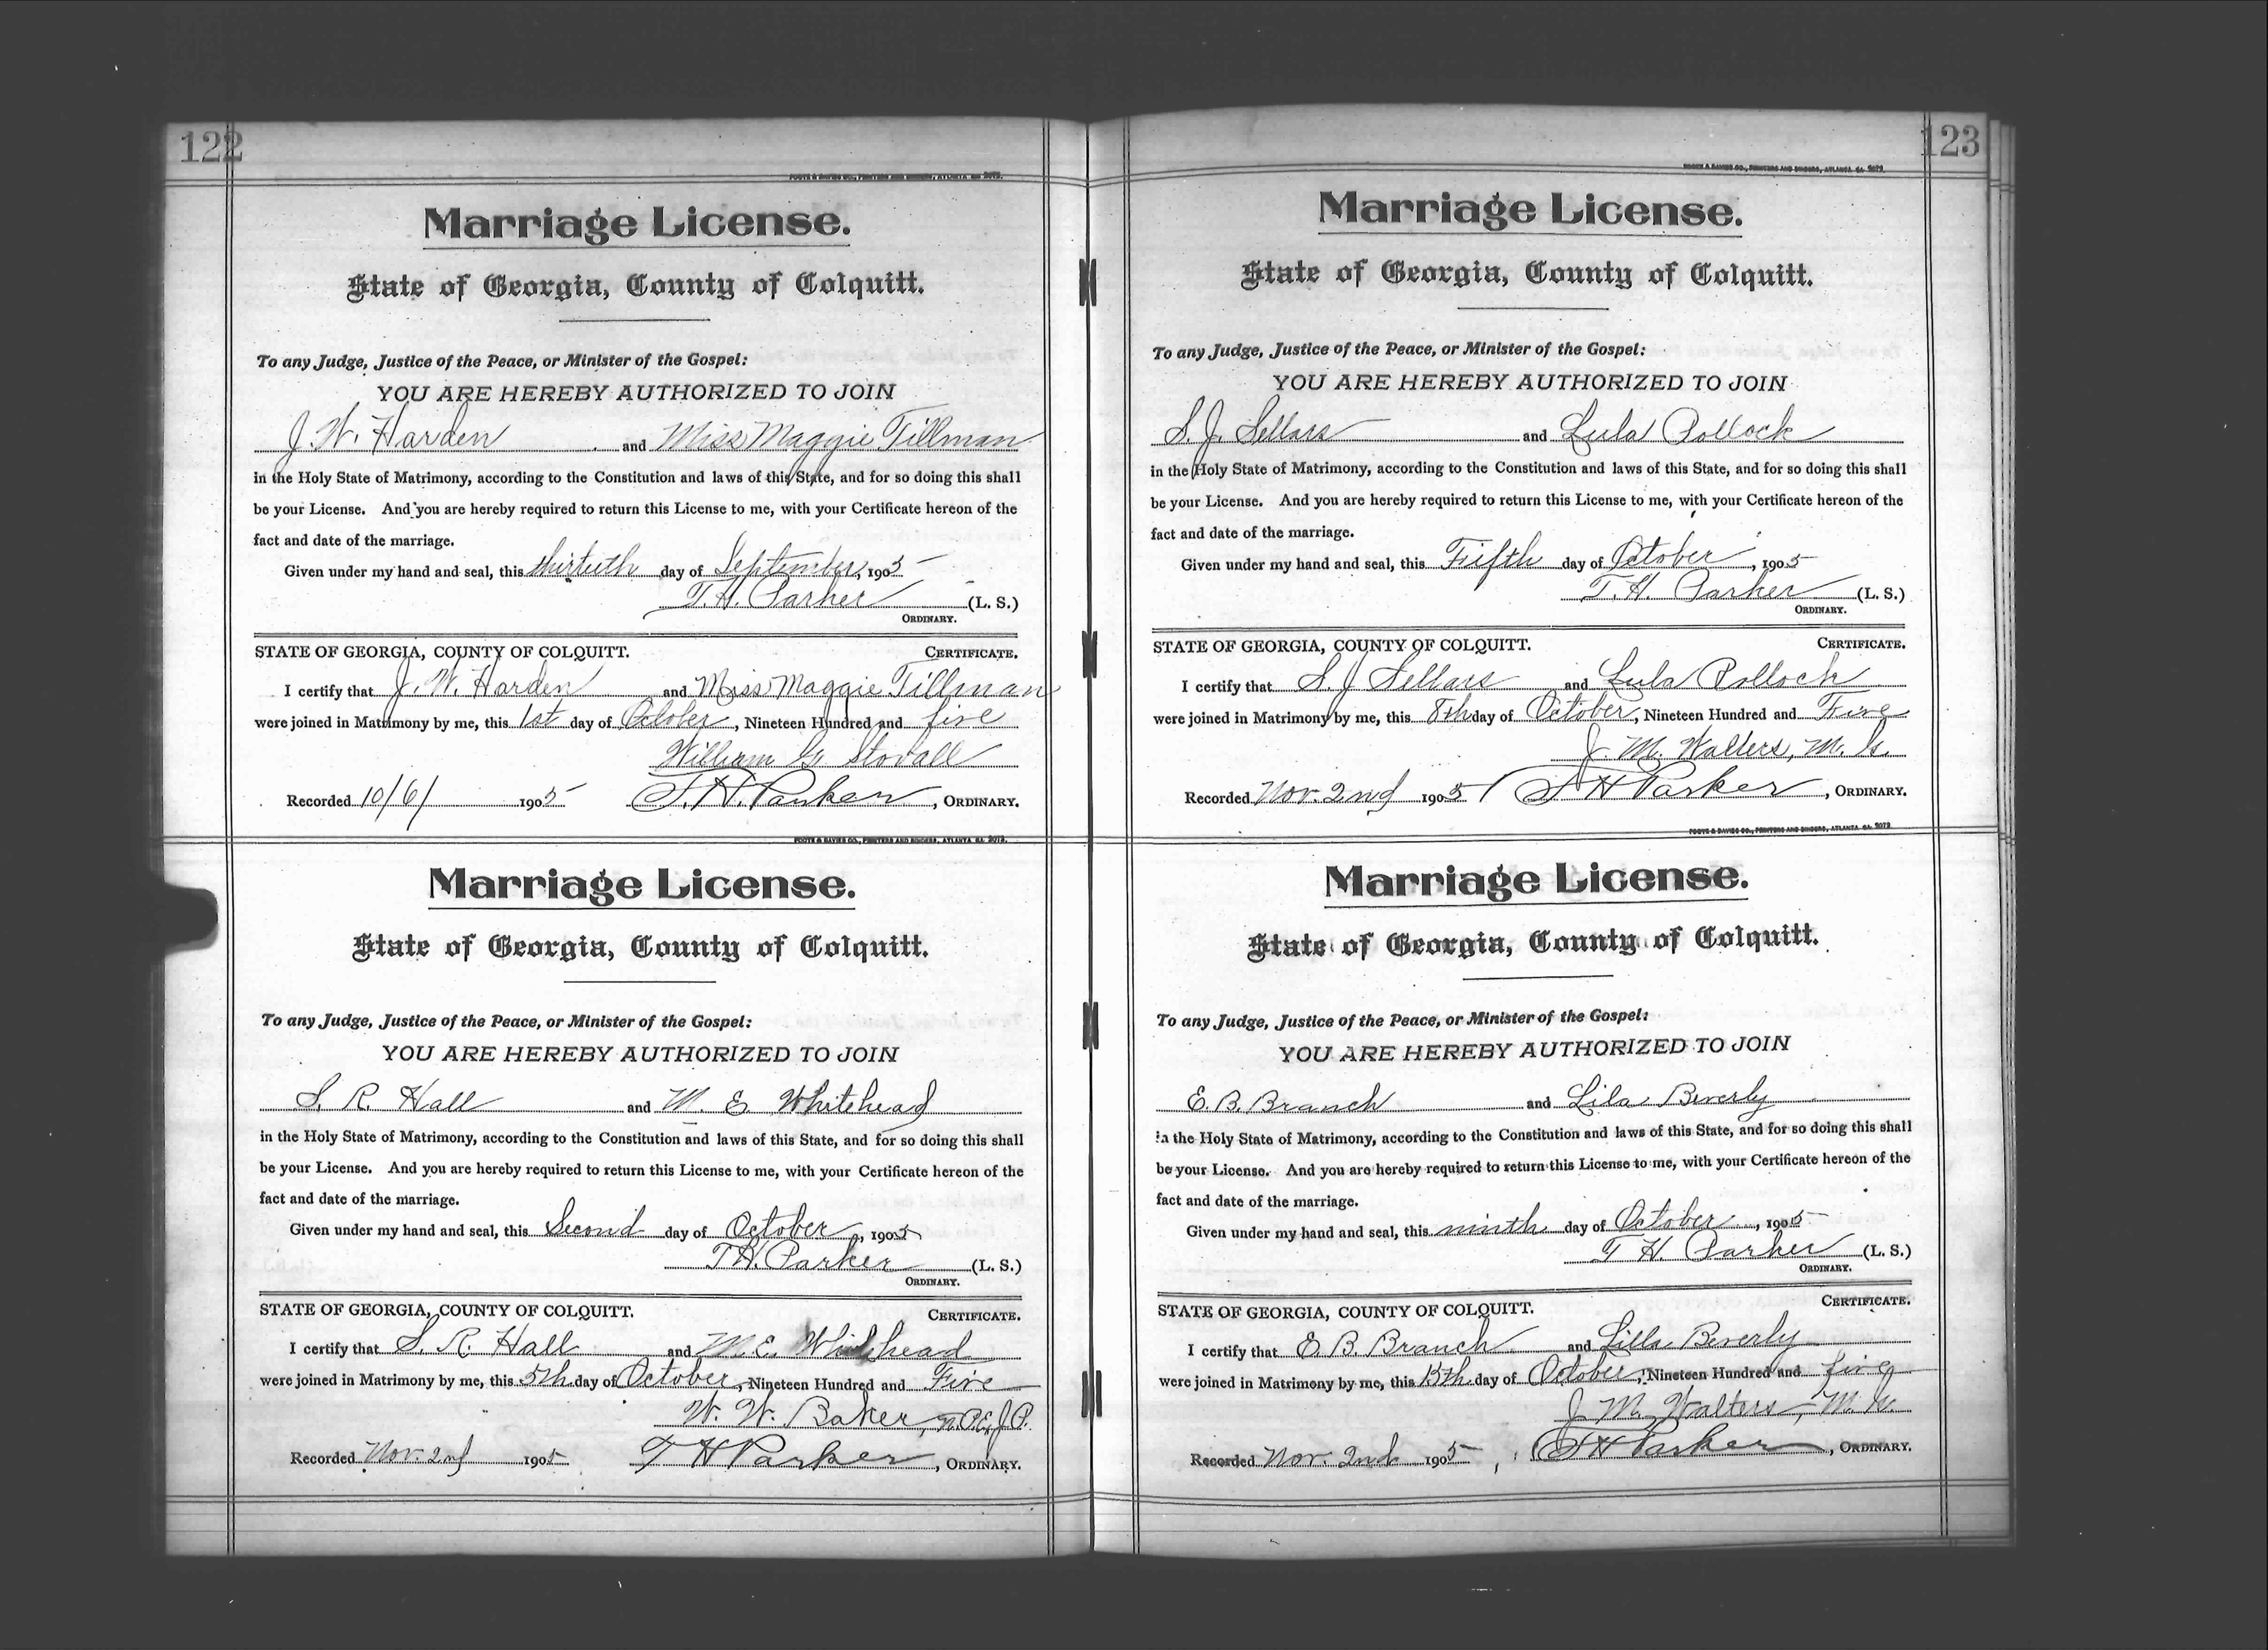 122
FOOTE & DAVIES CO., PRINTERS AND BINDERS, ATLANTA GA. 3073.
Marriage License.
State of Georgia, County of Colquitt.
To any Judge, Justice of the Peace, or Minister of the Gospel:
YOU ARE HEREBY AUTHORIZED TO JOIN
J. W. Harden and Miss Maggie Tillman
in the Holy State of Matrimony, according to the Constitution and laws of this State, and for so doing this shall
be your License. And you are hereby required to return this License to me, with your Certificate hereon of the
fact and date of the marriage.
Given under my hand and seal, this thirtieth day of September, 1905
T. H. Parker (L. S.)
ORDINARY.
STATE OF GEORGIA, COUNTY OF COLQUITT. CERTIFICATE.
I certify that J. W. Harden and Miss Maggie Tillman
were joined in Matrimony by me, this 1st day of October, Nineteen Hundred and five
William G. Stovall
Recorded 10/6/ 1905 T. H. Parker, ORDINARY.
FOOTE & DAVIES CO., PRINTERS AND BINDERS, ATLANTA GA. 3073.
Marriage License.
State of Georgia, County of Colquitt.
To any Judge, Justice of the Peace, or Minister of the Gospel:
YOU ARE HEREBY AUTHORIZED TO JOIN
S. R. Hall and M. E. Whitehead
in the Holy State of Matrimony, according to the Constitution and laws of this State, and for so doing this shall
be your License. And you are hereby required to return this License to me, with your Certificate hereon of the
fact and date of the marriage.
Given under my hand and seal, this Second day of October, 1905
T. H. Parker (L. S.)
ORDINARY.
STATE OF GEORGIA, COUNTY OF COLQUITT. CERTIFICATE.
I certify that S. R. Hall and M. E. Whitehead
were joined in Matrimony by me, this 5th day of October, Nineteen Hundred and Five
W. W. Baker, N. P. Ex J. P.
Recorded Nov. 2nd 1905 T H Parker, ORDINARY.
123
FOOTE & DAVIES CO., PRINTERS AND BINDERS, ATLANTA GA. 3073
Marriage License.
State of Georgia, County of Colquitt.
To any Judge, Justice of the Peace, or Minister of the Gospel:
YOU ARE HEREBY AUTHORIZED TO JOIN
S. J. Sellars and Lula Pollock
in the Holy State of Matrimony, according to the Constitution and laws of this State, and for so doing this shall
be your License. And you are hereby required to return this License to me, with your Certificate hereon of the
fact and date of the marriage.
Given under my hand and seal, this Fifth day of October, 1905
T. H. Parker (L. S.)
ORDINARY.
STATE OF GEORGIA, COUNTY OF COLQUITT. CERTIFICATE.
I certify that S. J Sellars and Lula Pollock
were joined in Matrimony by me, this 8th day of October, Nineteen Hundred and Five
J. M. Walters, M. G.
Recorded Nov. 2nd 1905 T H Parker, ORDINARY.
FOOTE & DAVIES CO., PRINTERS AND BINDERS, ATLANTA GA. 3073
Marriage License.
State of Georgia, County of Colquitt.
To any Judge, Justice of the Peace, or Minister of the Gospel:
YOU ARE HEREBY AUTHORIZED TO JOIN
E. B. Branch and Lila Beverly
in the Holy State of Matrimony, according to the Constitution and laws of this State, and for so doing this shall
be your License. And you are hereby required to return this License to me, with your Certificate hereon of the
fact and date of the marriage.
Given under my hand and seal, this ninth day of October, 1905
T H Parker (L. S.)
ORDINARY.
STATE OF GEORGIA, COUNTY OF COLQUITT. CERTIFICATE.
I certify that E. B. Branch and Lilla Beverly
were joined in Matrimony by me, this 15th day of October, Nineteen Hundred and five
J M. Walters, M. G.
Recorded Nov. 2nd 1905 T H Parker, ORDINARY.